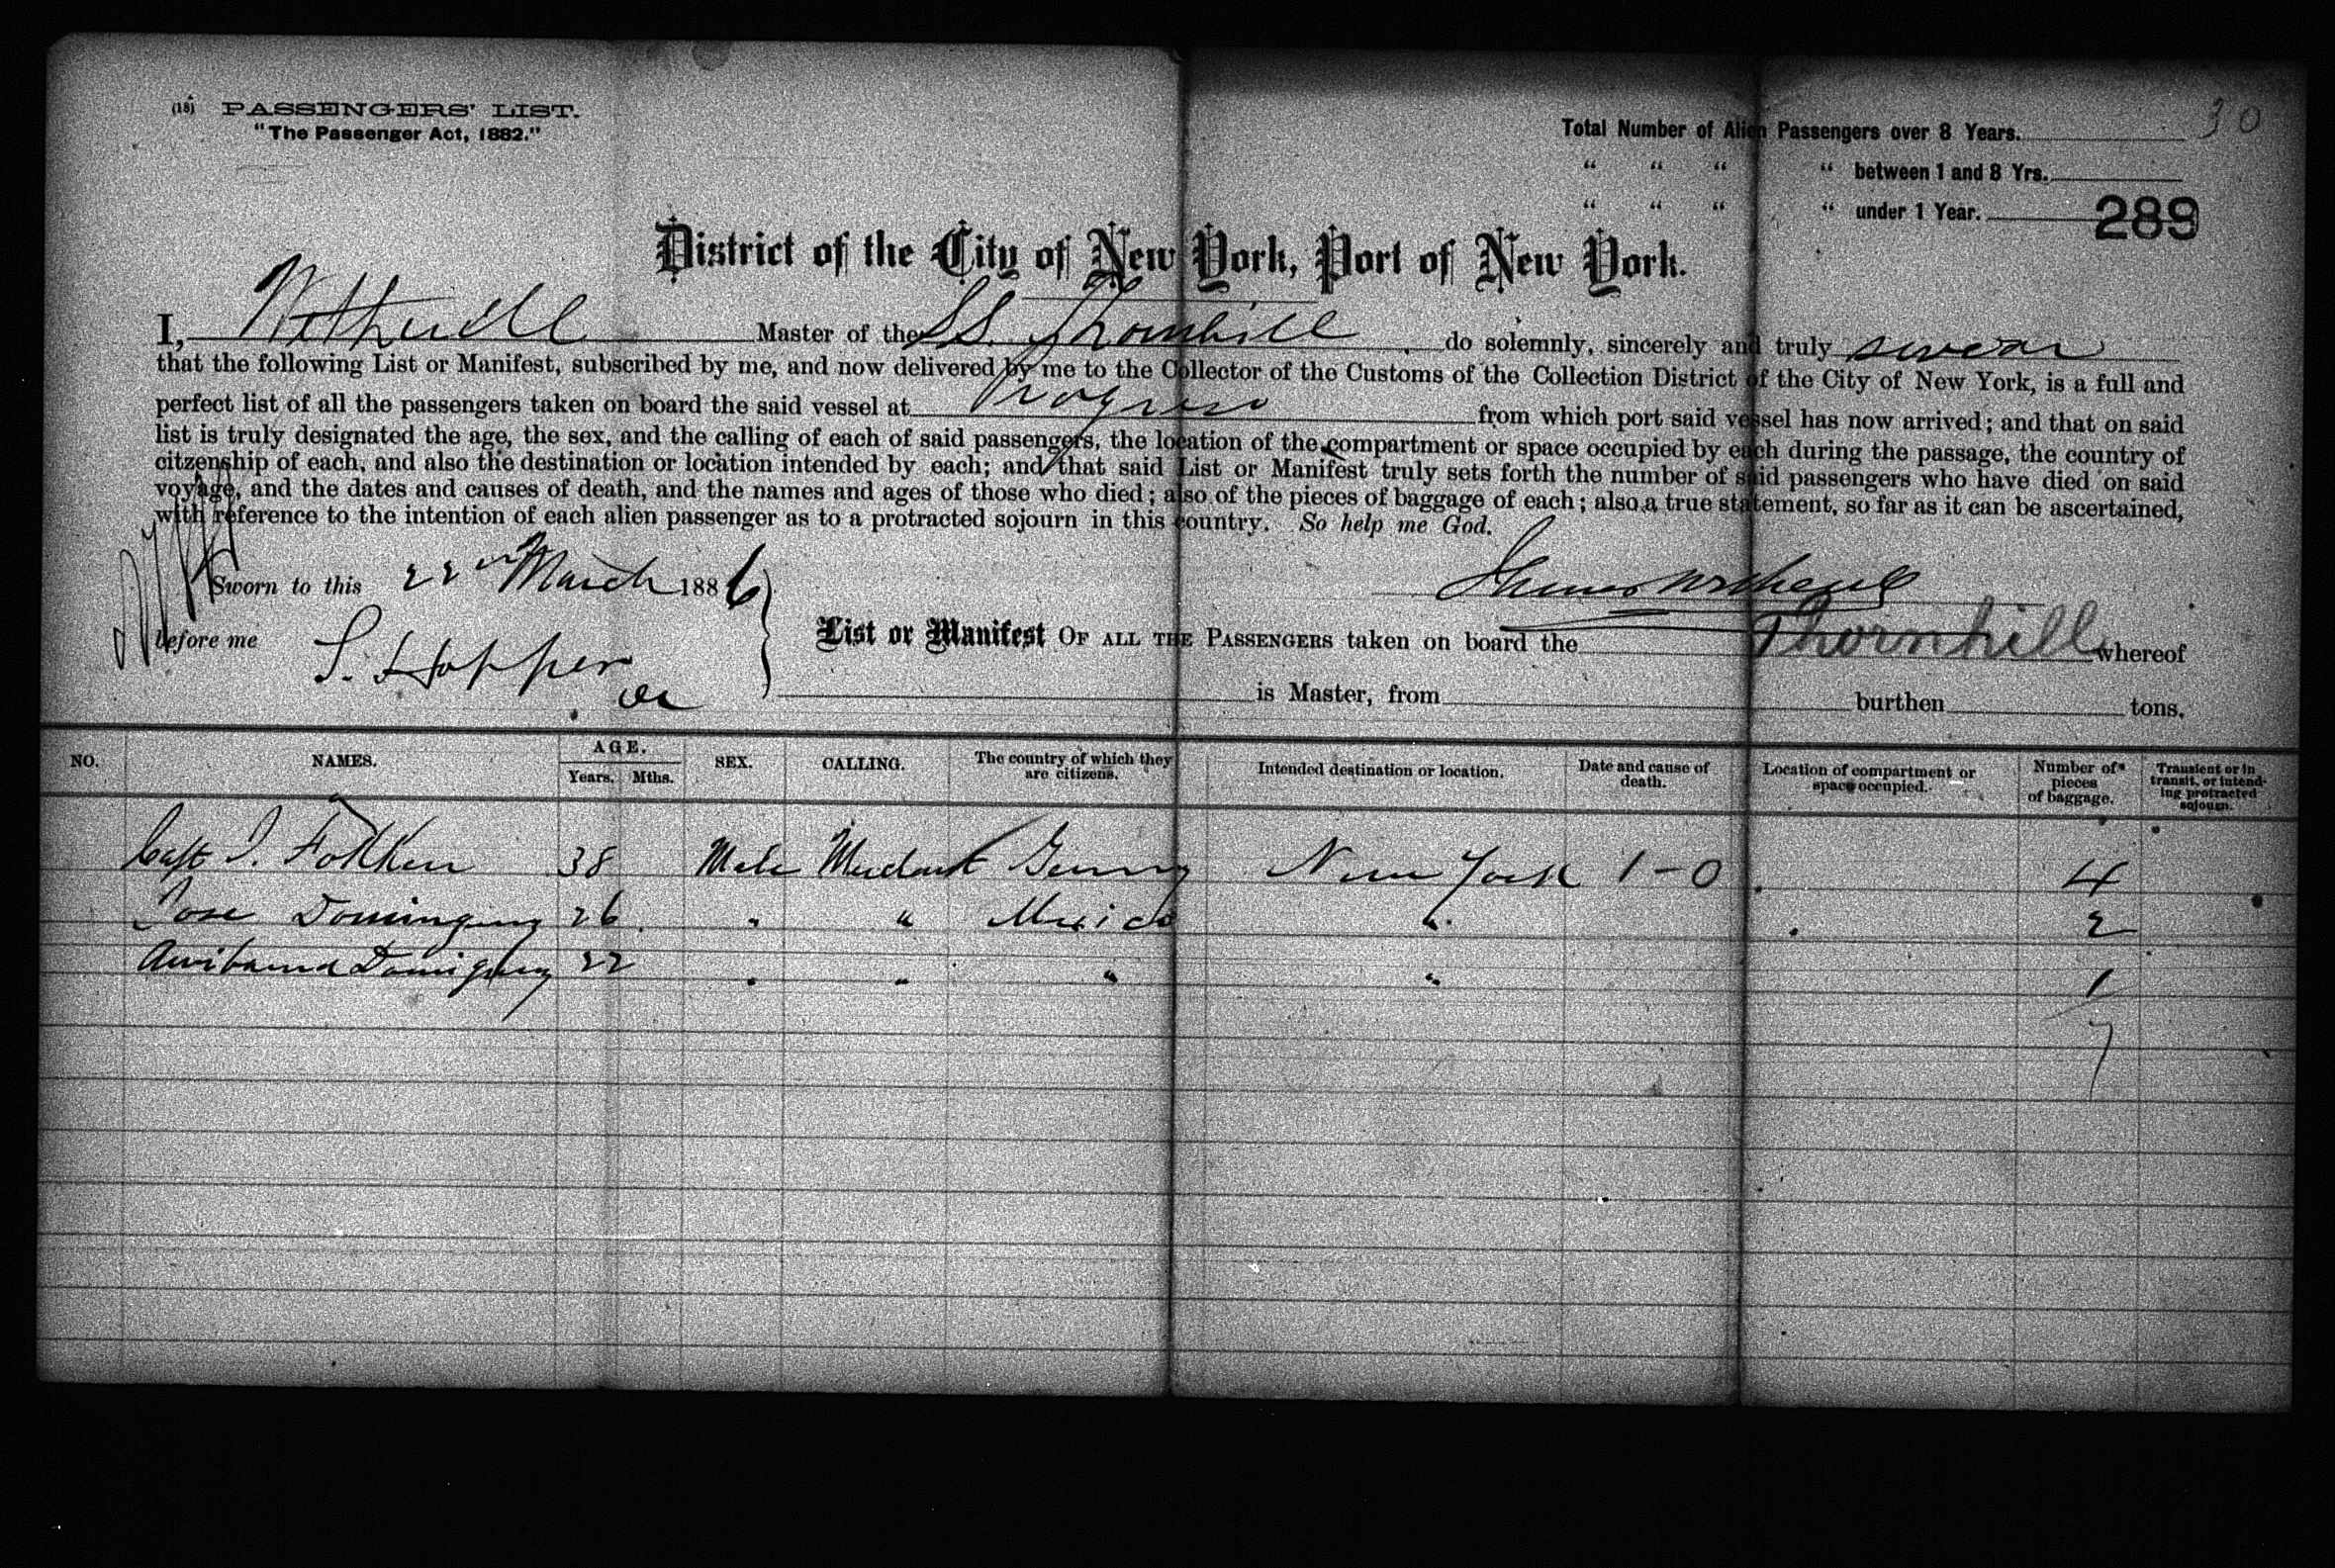 (18) PASSENGERS' LIST.
"The Passenger Act, 1882."
30
Total Number of Alien Passengers over 8 Years.
" " " " between 1 and 8 Yrs.
" " " " under 1 Year.
289
District of the City of New York, Port of New York.
I, Wetherell Master of the SS. Thornhill do solemnly, sincerely and truly swear
that the following List or Manifest, subscribed by me, and now delivered by me to the Collector of the Customs of the Collection District of the City of New York, is a full and
perfect list of all the passengers taken on board the said vessel at Progreso from which port said vessel has now arrived; and that on said
list is truly designated the age, the sex, and the calling of each of said passengers, the location of the compartment or space occupied by each during the passage, the country of
citzenship of each, and also the destination or location intended by each; and that said List or Manifest truly sets forth the number of said passengers who have died on said
voyage, and the dates and causes of death, and the names and ages of those who died; also of the pieces of baggage of each; also a true statement, so far as it can be ascertained,
with reference to the intention of each alien passenger as to a protracted sojourn in this country. So help me God.
Sworn to this 22nd March 1886
before me S. Hopper
List or Manifest OF ALL THE PASSENGERS taken on board the Thornhill whereof
is Master, from burthen tons.
NO. NAMES. AGE. Years. Mths. SEX. CALLING. The country of which they are citizens. Intended destination or location. Date and cause of death. Location of compartment or space occupied. Number of pieces of baggage. Transient or in transit, or intending protracted sojourn.
Capt J. Folkken 38 Male Merchant Germany New York 1-0 4
Jose Dominguez 26 " " Mexico " 2
Domiguez 22 " " " " 1
7